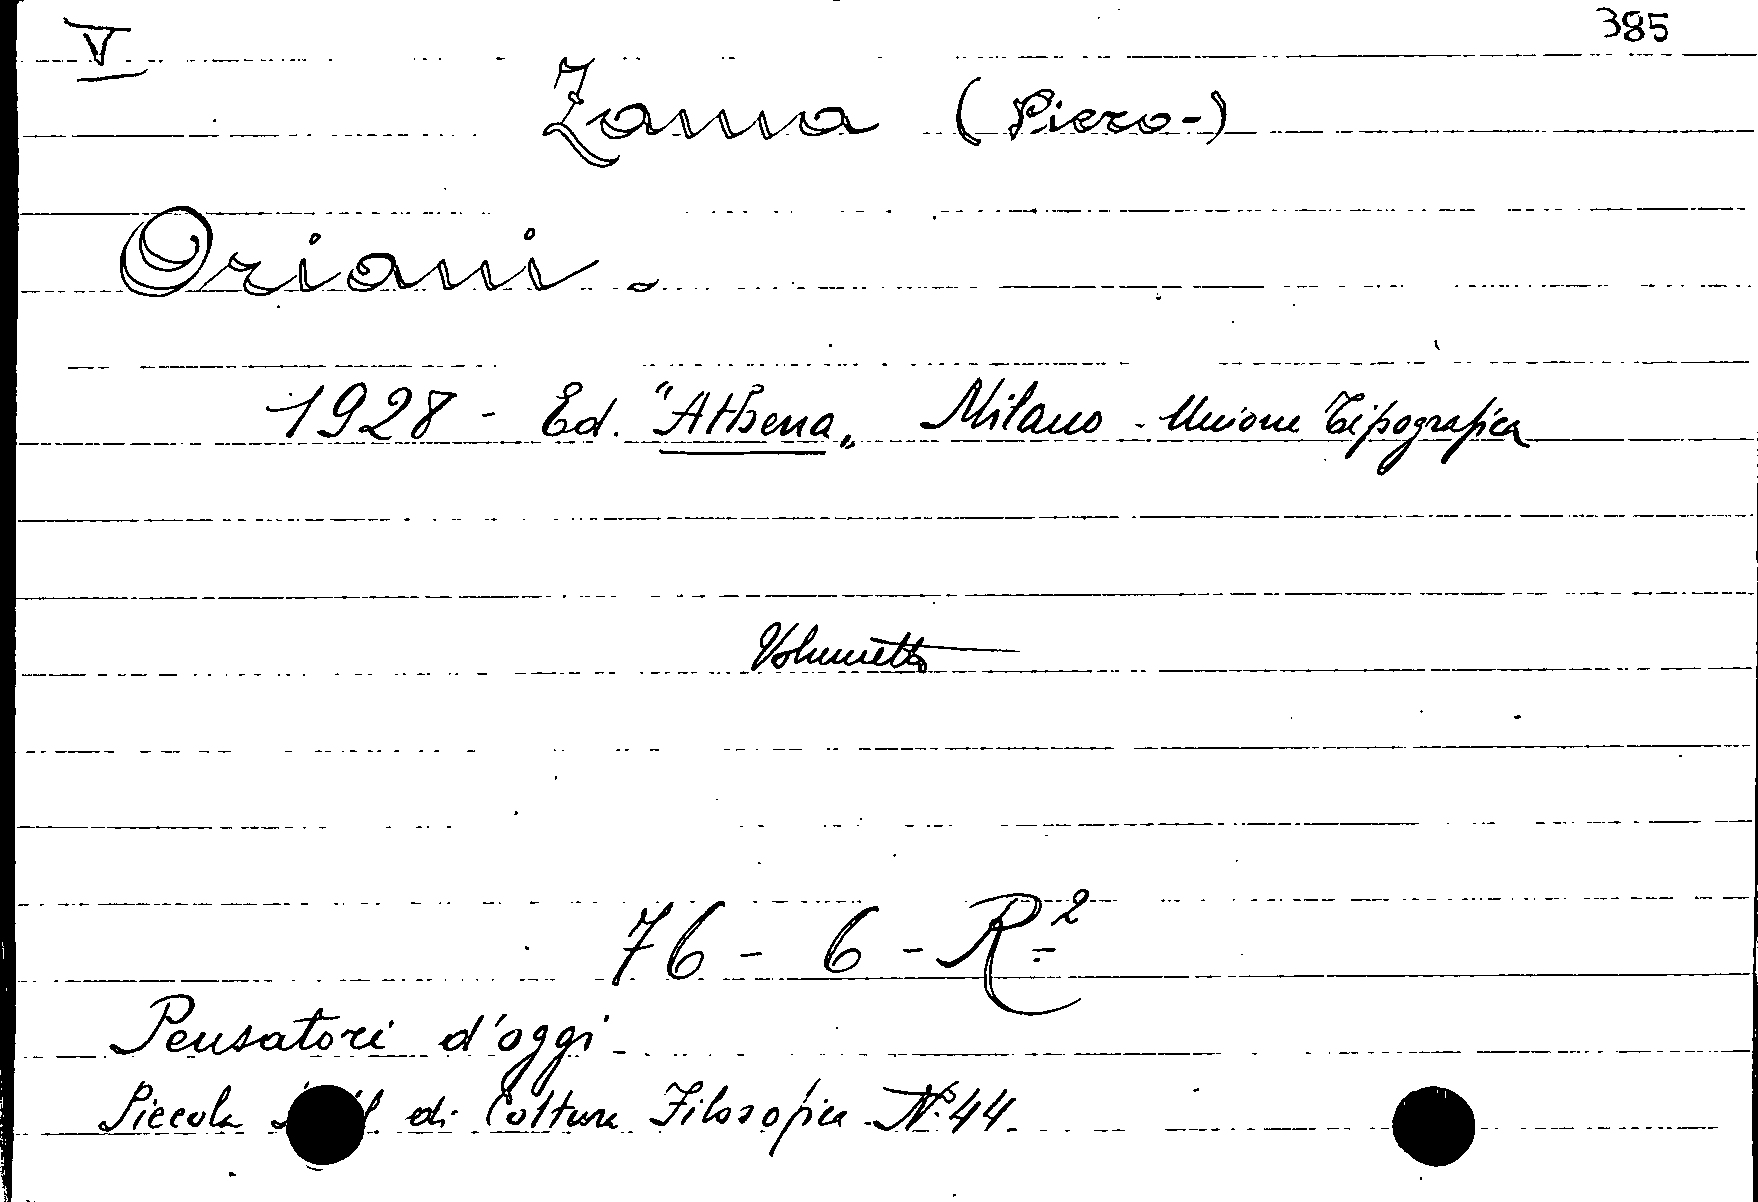 V
385
Zama (Piero-)
Oriani -
1928 - Ed. "Athena„ Milano - Unione Tipografica
Volumetto
76 - 6 - R²
Pensatori d'oggi
Piccola di Coltura Filosofica N. 44